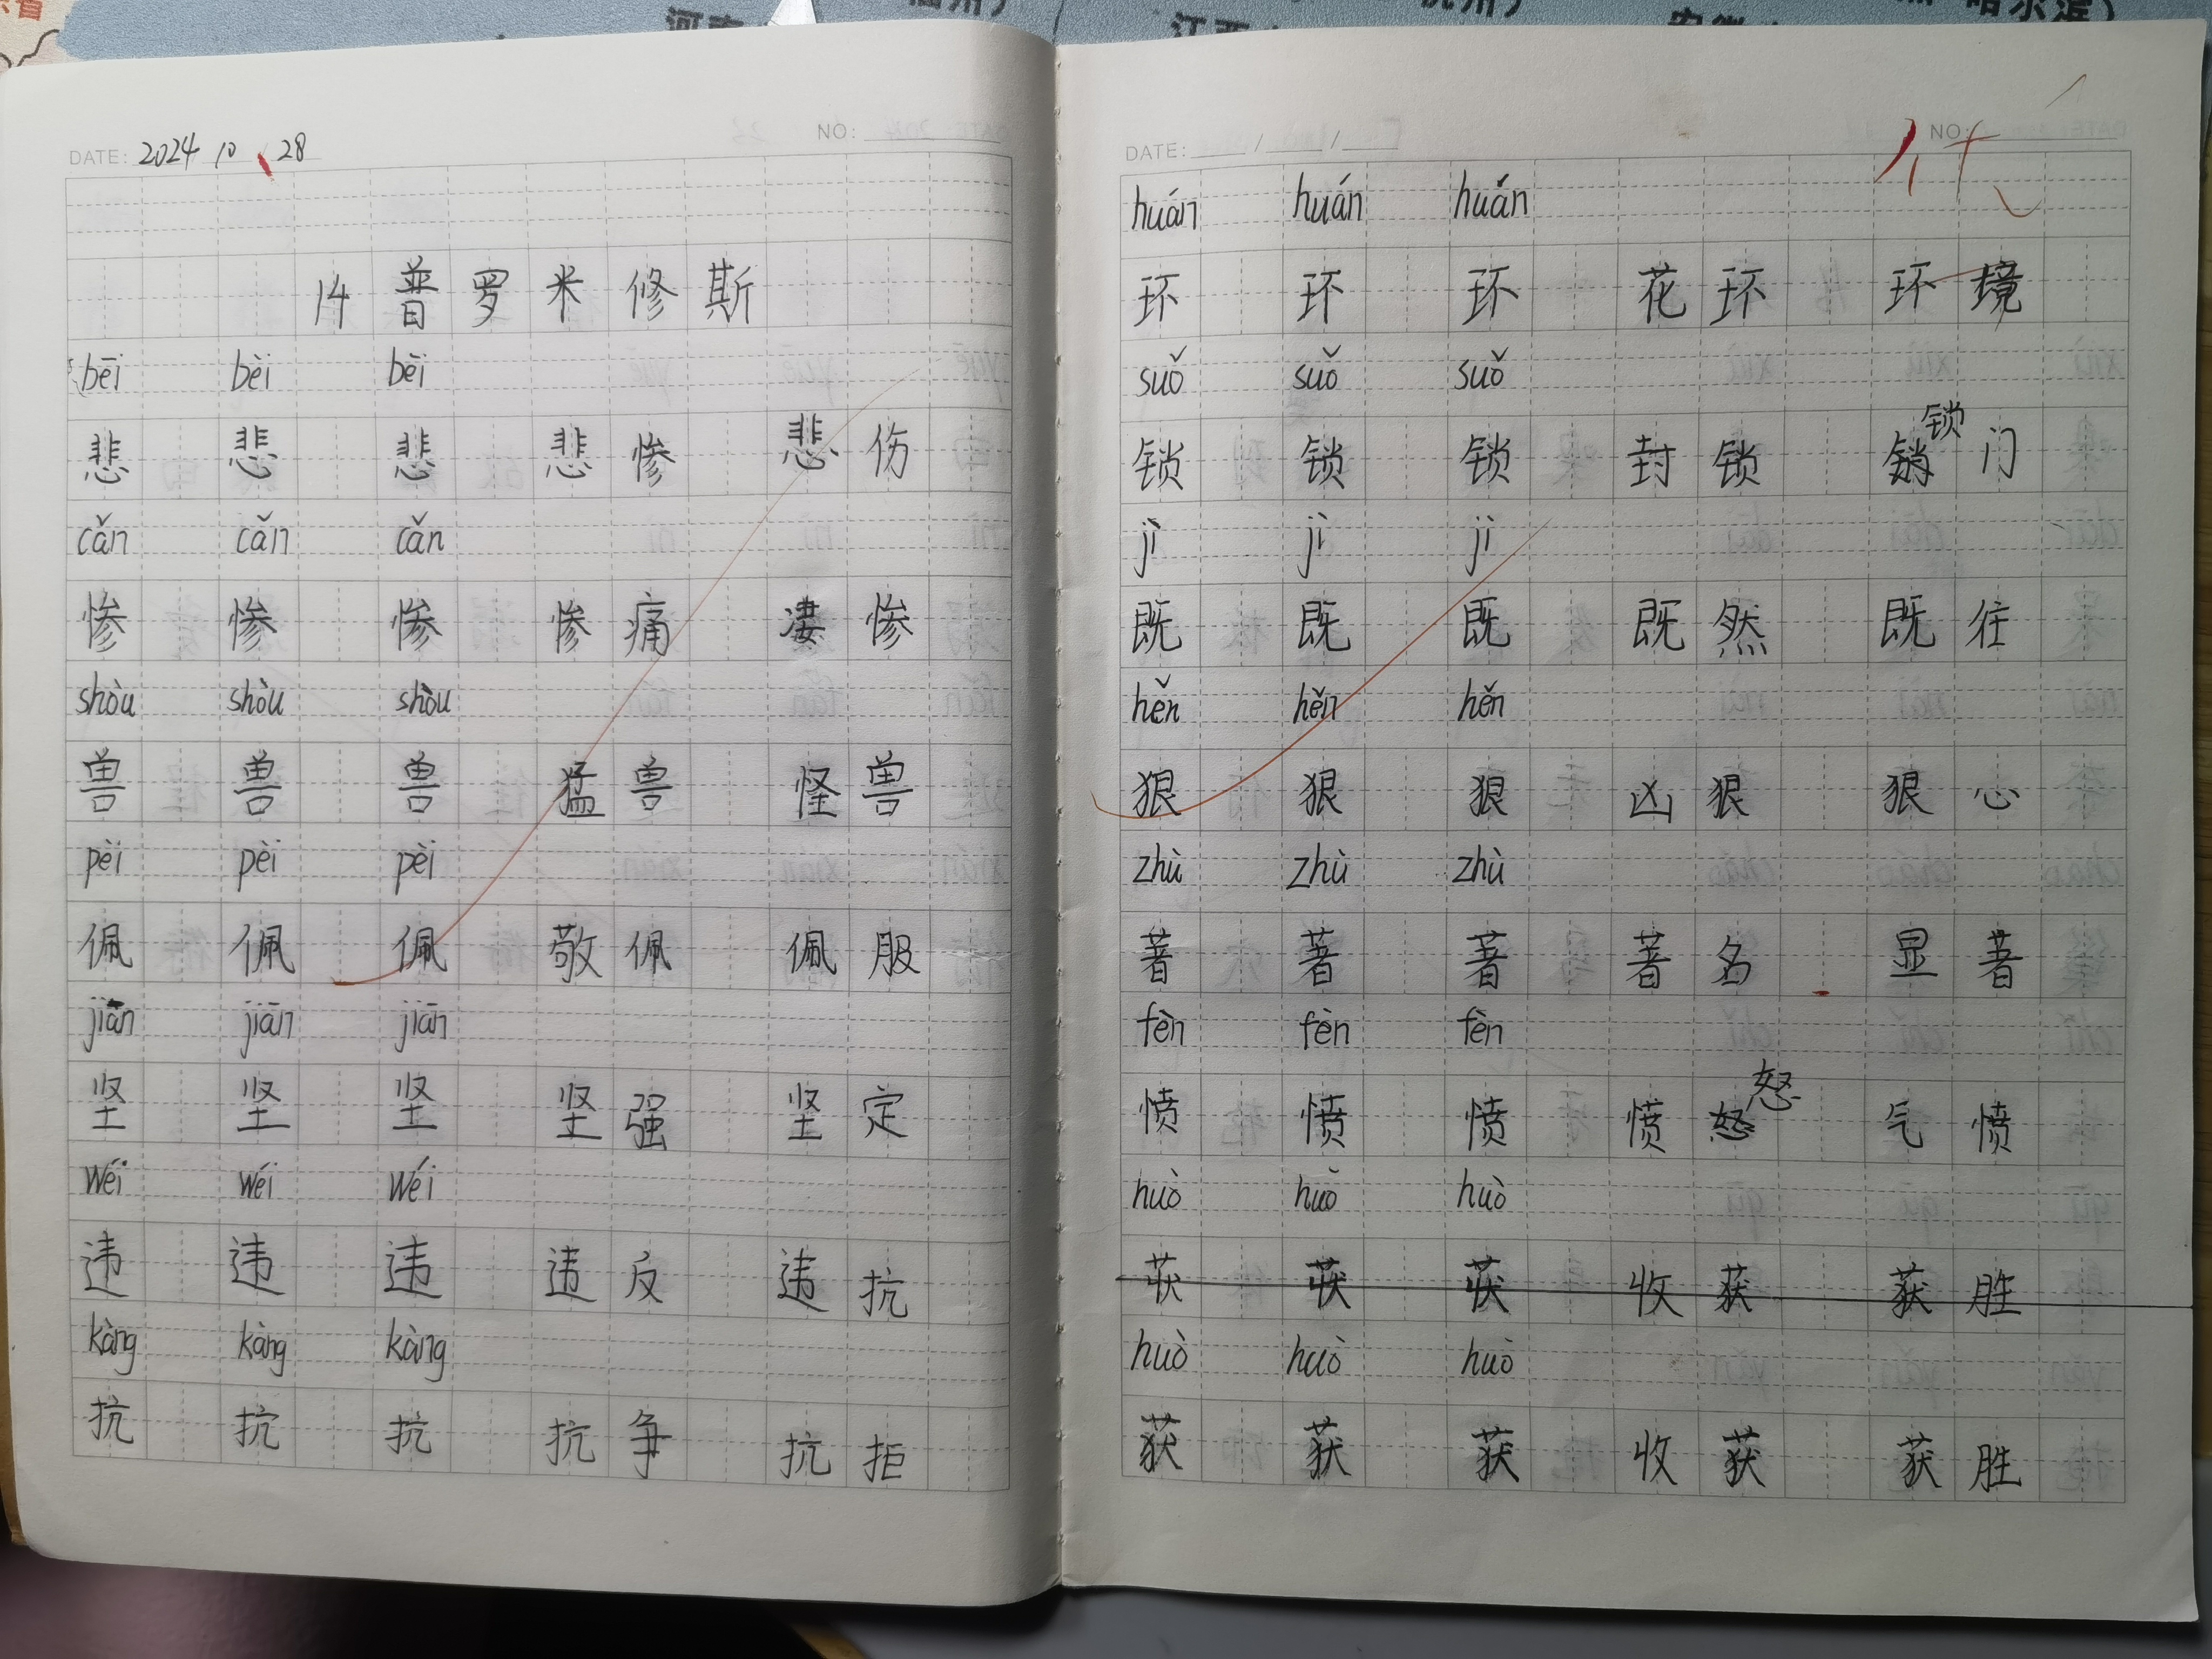 河南
江西
安徽
哈尔滨）
DATE: 2024 10 28
NO:
14 普罗米修斯
bēi bēi bēi
悲 悲 悲 悲惨 悲伤
cǎn cǎn cǎn
惨 惨 惨 惨痛 凄惨
shòu shòu shòu
兽 兽 兽 猛兽 怪兽
pèi pèi pèi
佩 佩 佩 敬佩 佩服
jiān jiān jiān
坚 坚 坚 坚强 坚定
wéi wéi wéi
违 违 违 违反 违抗
kàng kàng kàng
抗 抗 抗 抗争 抗拒
DATE: / /
NO:
优
huán huán huán
环 环 环 花环 环境
suǒ suǒ suǒ
锁
锁 锁 锁 封锁 门
jì jì jì
既 既 既 既然 既往
hěn hěn hěn
狠 狠 狠 凶狠 狠心
zhù zhù zhù
著 著 著 著名 显著
fèn fèn fèn
怒
愤 愤 愤 愤怒 气愤
huò huò huò
获 获 收获 获胜
huò huò huò
获 获 获 收获 获胜